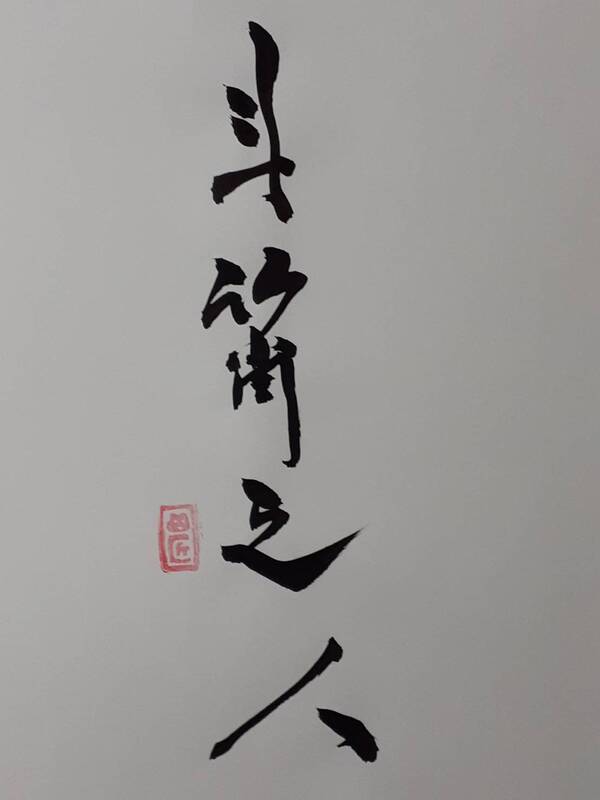 斗筲之人